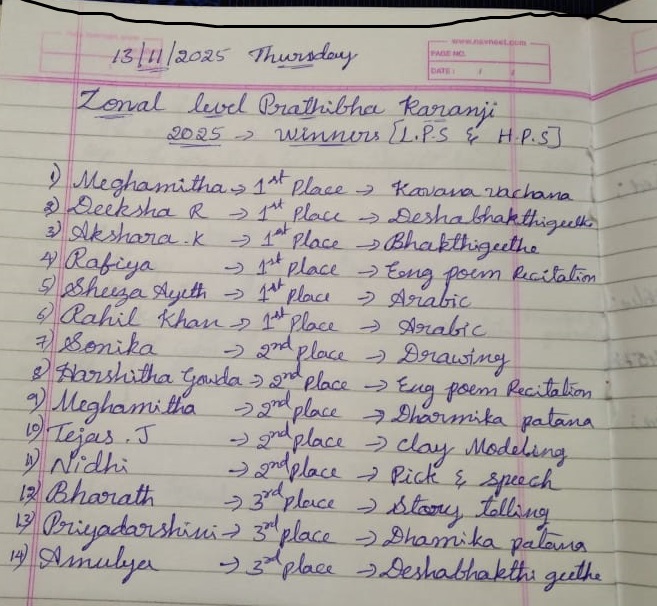 13/11/2025 Thursday
www.navneet.com
PAGE NO.
DATE : / /
Zonal level Prathibha Karanji
2025 → Winners [L.P.S & H.P.S]
1) Meghamitha → 1st Place → Kavana vachana
2) Deeksha R → 1st Place → Deshabhakthigeethe
3) Akshara.K → 1st Place → Bhakthigeethe
4) Rafiya → 1st Place → Eng poem Recitation
5) Sheeza Ayeth → 1st Place → Arabic
6) Rahil Khan → 1st Place → Arabic
7) Sonika → 2nd place → Drawing
8) Harshitha Gowda → 2nd place → Eng poem Recitation
9) Meghamitha → 2nd place → Dharmika patana
10) Tejas.J → 2nd place → clay Modeling
11) Nidhi → 2nd place → Pick & speech
12) Bharath → 3rd place → Story telling
13) Priyadarshini → 3rd place → Dhamika patana
14) Amulya → 3rd place → Deshabhakthi geethe